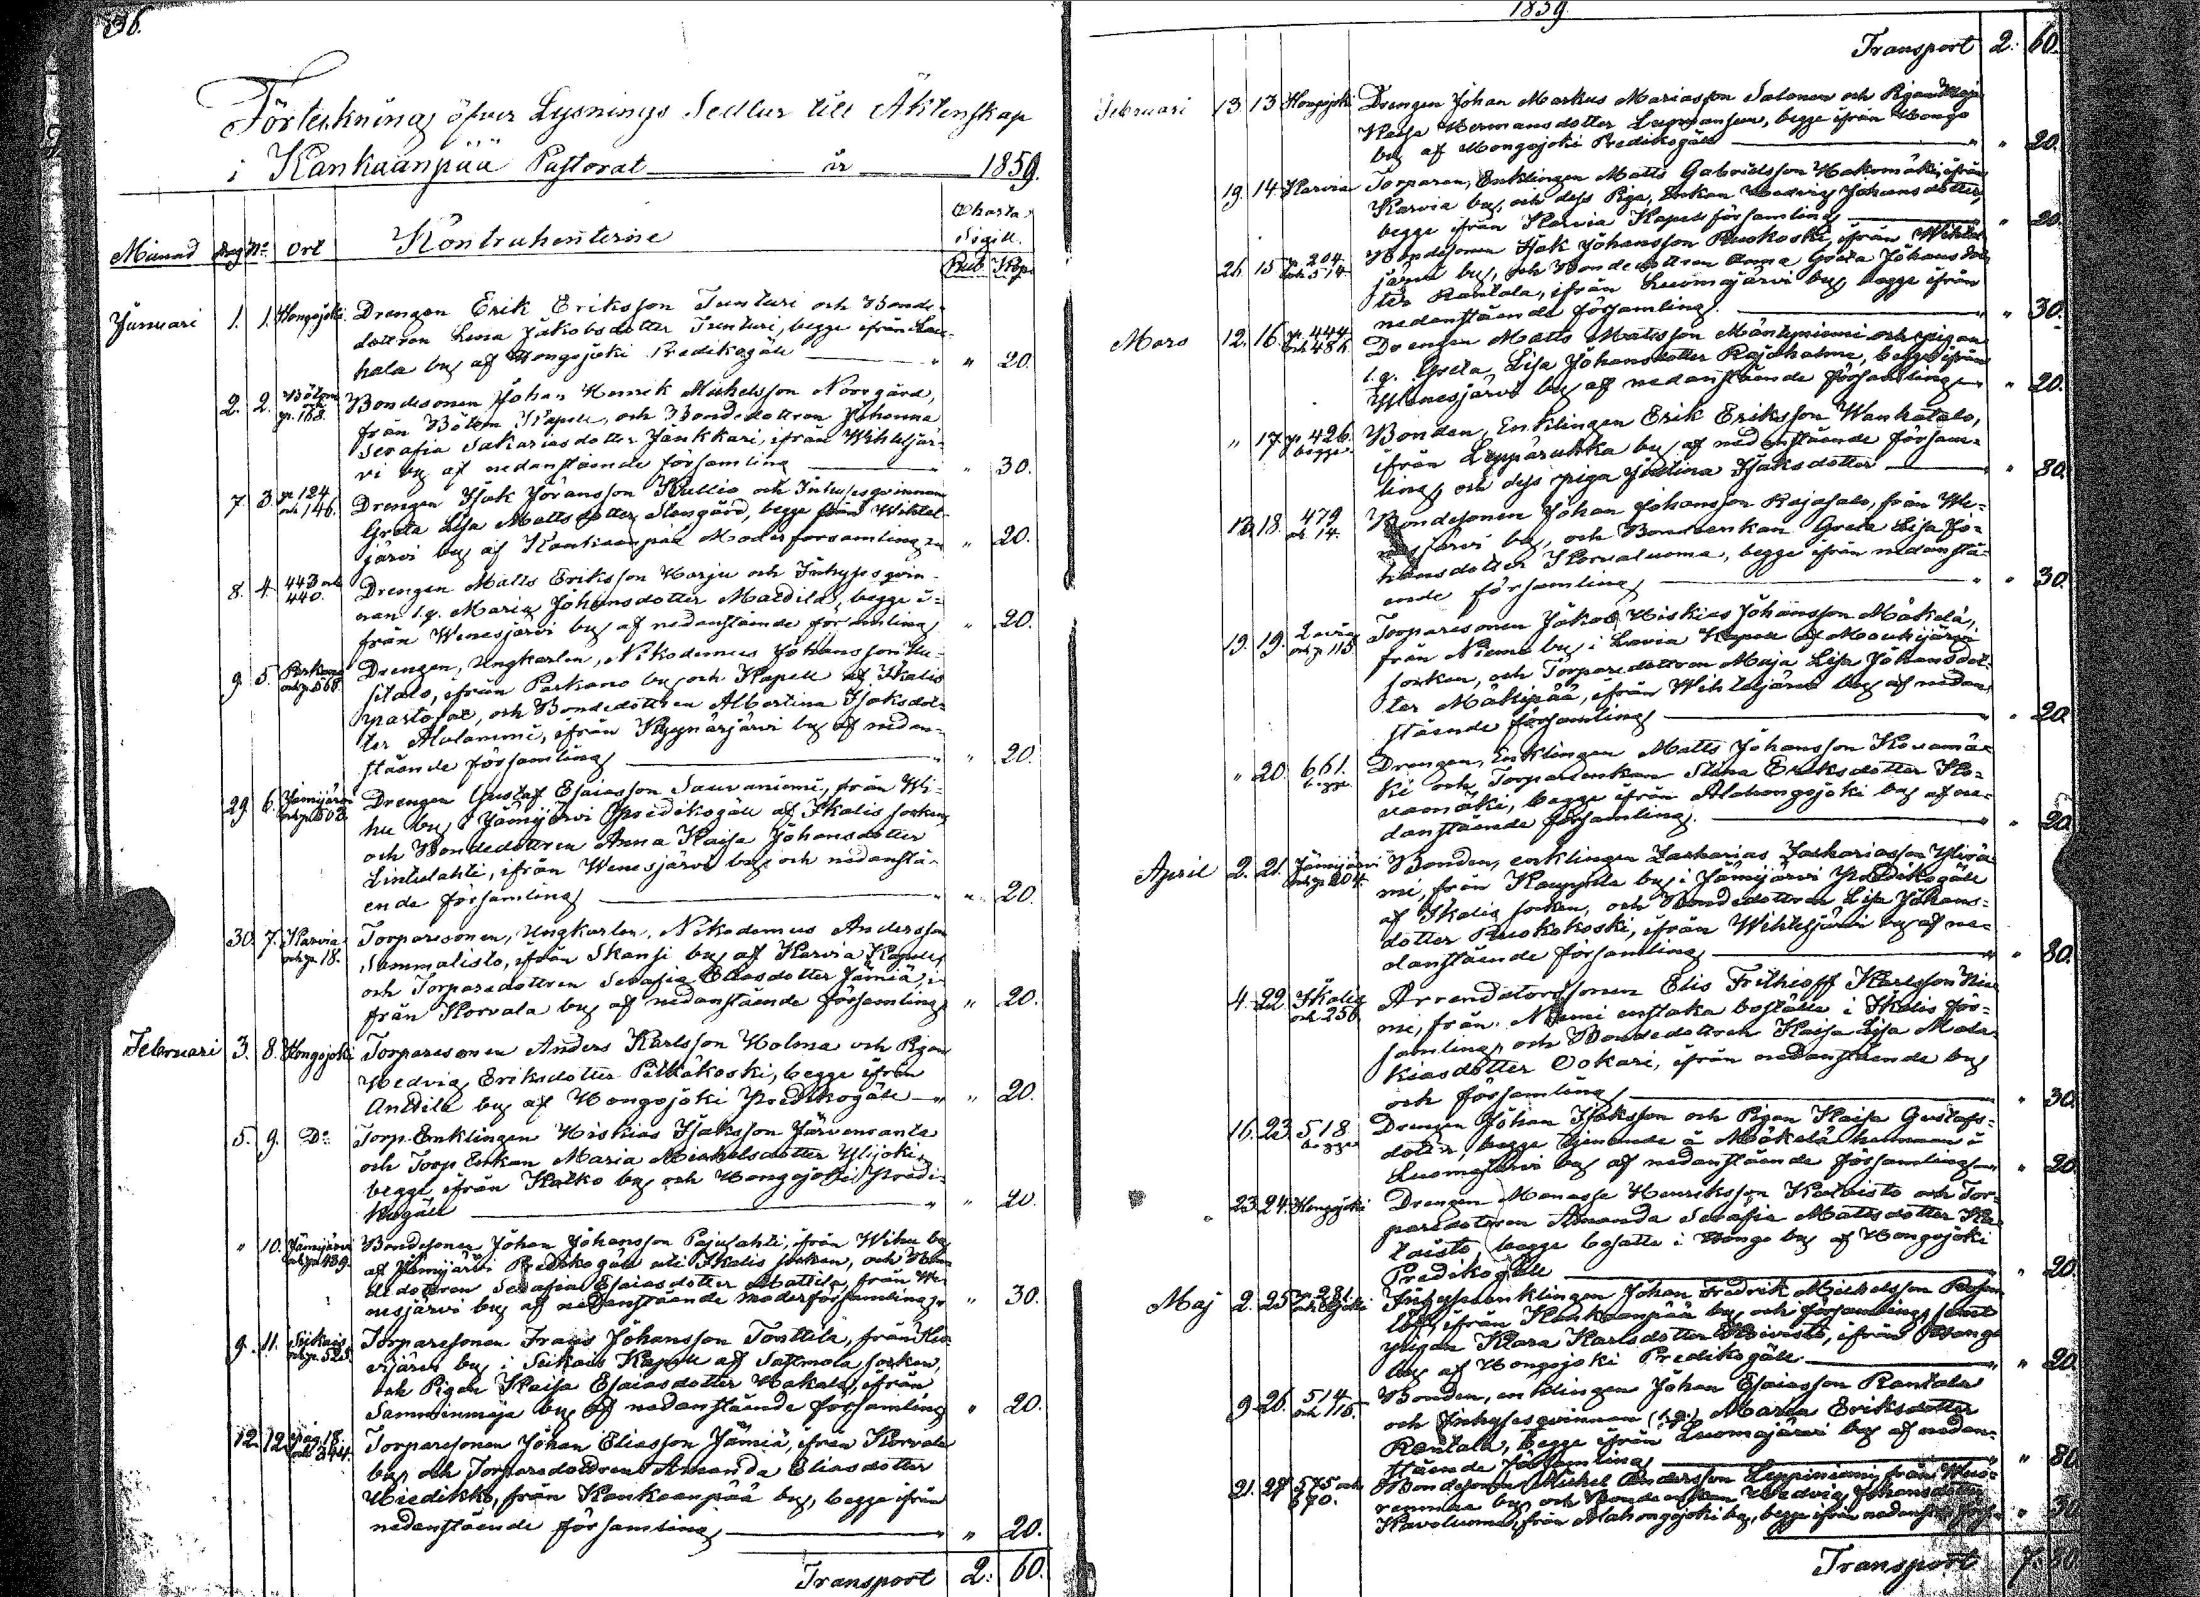 96.
Förteckning öfver Lysnings Sedlar till Äktenskap
i Kankaanpää Pastorat år 1859.
Månad Dag No Ort Kontrahenterne Charta Sigill. Rub. Kop.
Januari 1. 1. Hongojoki Drengen Erik Eriksson Junturi och Bonde-
dottren Lena Jakobsdotter Junturi, begge ifrån Lau-
hala by af Hongojoki Predikogäll " 20.
2. 2. Bötom och p. 168. Bondesonen Johan Henrik Mickelsson Norrgård,
från Bötom Kapell, och Bondedottren Johanna
Serafia Sakariasdotter Jankkari, ifrån Wihteljär-
vi by af nedanstående församling " 30.
7. 3. p. 124 och 146. Drengen Isak Johansson Kallio och Inhysesqvinnan
Greta Lisa Mattsdotter Stengård, begge från Wihtel-
järvi by af Kankaanpää Moderförsamling " 20.
8. 4. 443 och 440. Drengen Matts Eriksson Harju och Inhysesqvin-
nan l.q. Maria Johansdotter Mattila, begge i-
från Wenesjärvi by af nedanstående församling " 20.
9. 5. Parkano och p. 568. Drengen, Ungkarlen, Nikodemus Johansson Uu-
sitalo, ifrån Parkano by och Kapell af Ikalis
pastorat, och Bondedottren Albertina Isaksdot-
ter Alalammi, ifrån Kyynärjärvi by af nedan-
stående församling " 20.
29. 6. Jämijärvi och p. 502. Drengen Gustaf Esaiasson Sauraniemi, från Wi-
hu by i Jämijärvi Predikogäll af Ikalis socken,
och Bondedottren Anna Kaisa Johansdotter
Lintulahti, ifrån Wenesjärvi by och nedanstå-
ende församling " 20.
30. 7. Karvia och p. 18. Torparesonen, Ungkarlen, Nikodemus Andersson
Sammalisto, ifrån Skansi by af Karvia Kapell,
och Torparedottren Serafia Eliasdotter Jämiä, i-
från Korvala by af nedanstående församling " 20.
Februari 3. 8. Hongojoki Torparesonen Anders Karlsson Holma och Pigan
Hedvig Eriksdotter Pitkäkoski, begge ifrån
Anttila by af Hongojoki Predikogäll " 20.
5. 9. Do Torp. Enklingen Hiskias Isaksson Järvensanta
och Torp. Enkan Maria Michelsdotter Ylijoki,
begge ifrån Katko by och Hongojoki Predi-
kogäll " 20.
" 10. Jämijärvi och p. 489. Bondesonen Johan Johansson Pajulahti, ifrån Wihu by
af Jämijärvi Predikogäll uti Ikalis socken, och Bon-
dedottren Serafia Esaiasdotter Mattila, från We-
nesjärvi by af nedanstående moderförsamling " 30.
9. 11. Siikais och p. 525. Torparesonen Frans Johansson Tonttila, från
by i Siikais Kapell af Sastmola socken,
och Pigan Kaisa Esaiasdotter Hakala, ifrån
Samminmaja by af nedanstående församling " 20.
12. 12. pag. 18. och 344. Torparesonen Johan Eliasson Jämiä, ifrån Korvala
by, och Torparedottren Amanda Eliasdotter
Hiedikko, från Kankaanpää by, begge ifrån
nedanstående församling " 20.
Transport 2: 60.
1859
Transport 2: 60.
Februari 13. 13. Hongojoki Drengen Johan Markus Mariasson Salonen och Pigan Maja
Kaisa Hermansdotter Luomansuu, begge ifrån Hongo
by af Hongojoki Predikogäll " 20.
19. 14. Karvia Torparen, Enklingen Matts Gabrielsson Hakomäki, ifrån
Karvia by, och dess Piga, Enkan Hedvig Johansdotter,
begge ifrån Karvia Kapellförsamling " 20.
26. 15. p. 204 och 514. Bondesonen Isak Johansson Ruokoski, ifrån Wihtel-
järvi by, och Bondedottren Anna Greta Johansdot-
ter Rantala, ifrån Luomajärvi by, begge ifrån
nedanstående församling " 30.
Mars 12. 16. p. 444 och 486. Drengen Matts Mattsson Mäntyniemi och pigan
l.q. Greta Lisa Johansdotter Rajahalme, begge ifrån
Wenesjärvi by af nedanstående församling " 20.
" 17. p. 426. begge. Bonden, Enklingen Erik Eriksson Wanhatalo,
ifrån Leppäruhka by af nedanstående försam-
ling, och dess piga Justina Isaksdotter " 80.
13. 18. 479 och 14. Bondesonen Johan Johansson Rajasalo, från We-
nesjärvi by, och Bondeenkan Greta Lisa Jo-
hansdotter Korvaluoma, begge ifrån nedanstå-
ende församling " 30.
19. 19. Lavia och p. 115 Torparesonen Jakob Hiskias Johansson Mäkelä,
från Niemi by i Lavia Kapell af Mouhijärvi
socken, och Torparedottren Maja Lisa Johansdot-
ter Mäkipää, ifrån Wihteljärvi by af nedan-
stående församling " 20.
" 20. 661. begge. Drengen, Enklingen Matts Johansson Kovamä-
ki och Torpareenkan Stina Eriksdotter Ko-
vamäki, begge ifrån Alahongojoki by af ne-
danstående församling. " 20.
April 2. 21. Jämijärvi och p. 204. Bonden, enklingen Zacharias Zachariasson Yliniä-
mi, från Kauppila by i Jämijärvi Predikogäll
af Ikalis socken, och Bondedottren Lisa Johans-
dotter Ruokokoski, ifrån Wihteljärvi by af ne-
danstående församling " 80.
4. 22. Ikalis och 256. Arrendatorsonen Elis Frithioff Karlsson Nie-
mi, från Niemi enstaka boställe i Ikalis för-
samling, och Bondedottren Kaisa Lisa Mala-
kiasdotter Ookari, ifrån nedanstående by
och församling " 30.
16. 23. 518 begge Drengen Johan Isaksson och Pigan Kaisa Gustafs-
dotter, begge tjenende å Mäkelä hemman i
Luomajärvi by af nedanstående församling " 20.
23. 24. Hongojoki Drengen Manasse Henriksson Kataisto och Tor-
paredottren Amanda Serafia Mattsdotter Ka-
taisto, begge bosatte i Hongo by af Hongojoki
Predikogäll " 20.
Maj 2. 25. p. 281. och Hgjoki Inhysesenklingen Johan Fredrik Michelsson Rosen-
löf, ifrån Kankaanpää by och församling, samt
pigan Klara Karlsdotter Koivisto, ifrån Hongo
by af Hongojoki Predikogäll " 20.
9. 26. 514 och 116. Bonden, enklingen Johan Esaiasson Rantala
och Inhysesqvinnan (l.q.) Maria Eriksdotter
Rantala, begge ifrån Luomajärvi by af nedan-
stående församling " 80.
21. 27. 575 och 670. Bondesonen Michel Andersson Leppiniemi, från
by, och Bondeenkan Hedvig Johansdotter
från Alahongojoki by, begge ifrån nedanst. förs. " 30
Transport 7: 80